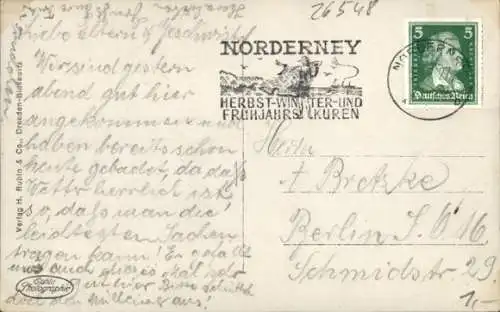 26548
Liebe Eltern u. Geschwister!
Wir sind gestern
abend gut hier
angekommen und
haben bereits schon
heute gebadet, da das
Wetter herrlich ist
so, daß man die
leichtesten Sachen
tragen kann! Es gefällt
uns auch dieses Mal sehr
hier. Bitte
doch den
aus!
Verlag H. Rubin & Co., Dresden-Blasewitz
Echte
Photographie
NORDERNEY
HERBST-WINTER-UND
FRÜHJAHRS KUREN
NORDERNEY
5 5
Deutsches Reich
Herrn
A Bretzke
Berlin S. O 16
Schmidstr. 29
1,-